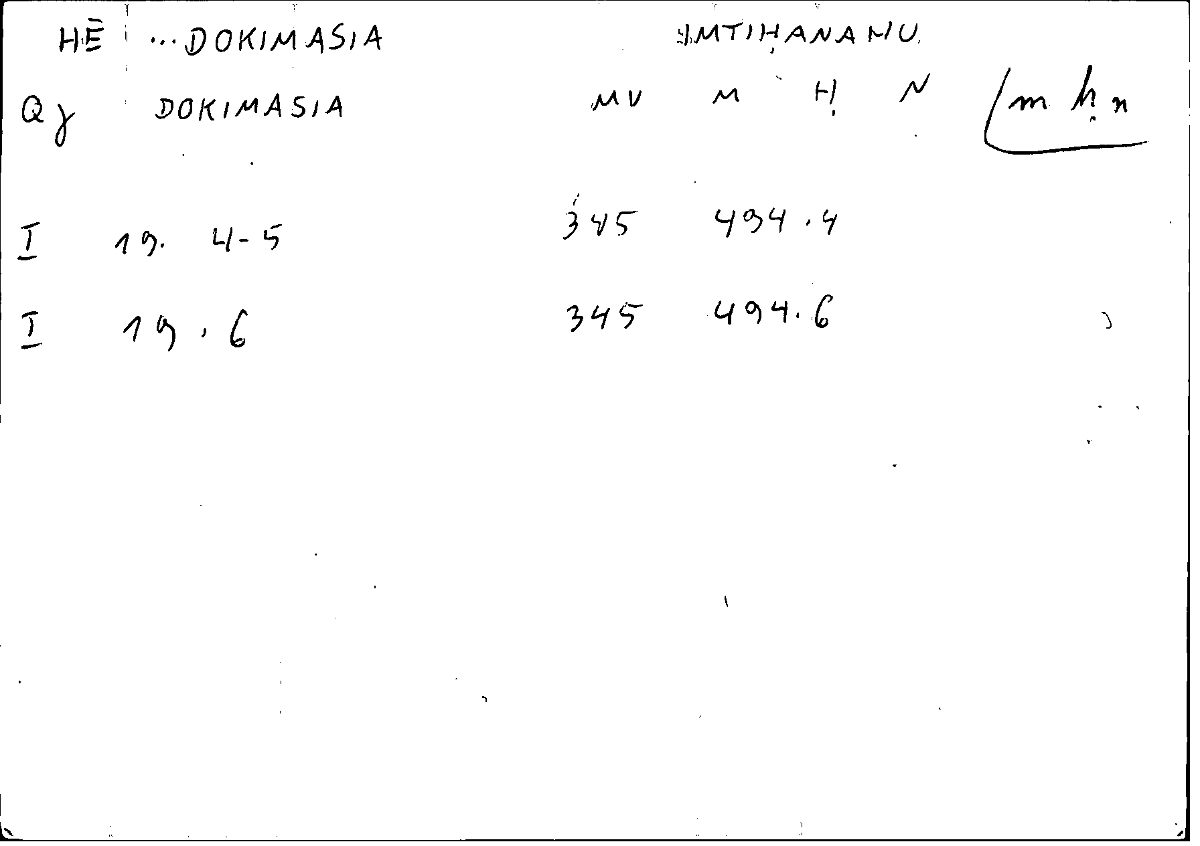 HĒ ...DOKIMASIA IMTIḤANAHU
Qγ DOKIMASIA MV M Ḥ N m ḥ n
I 19. 4-5 345 494.4
I 19.6 345 494.6